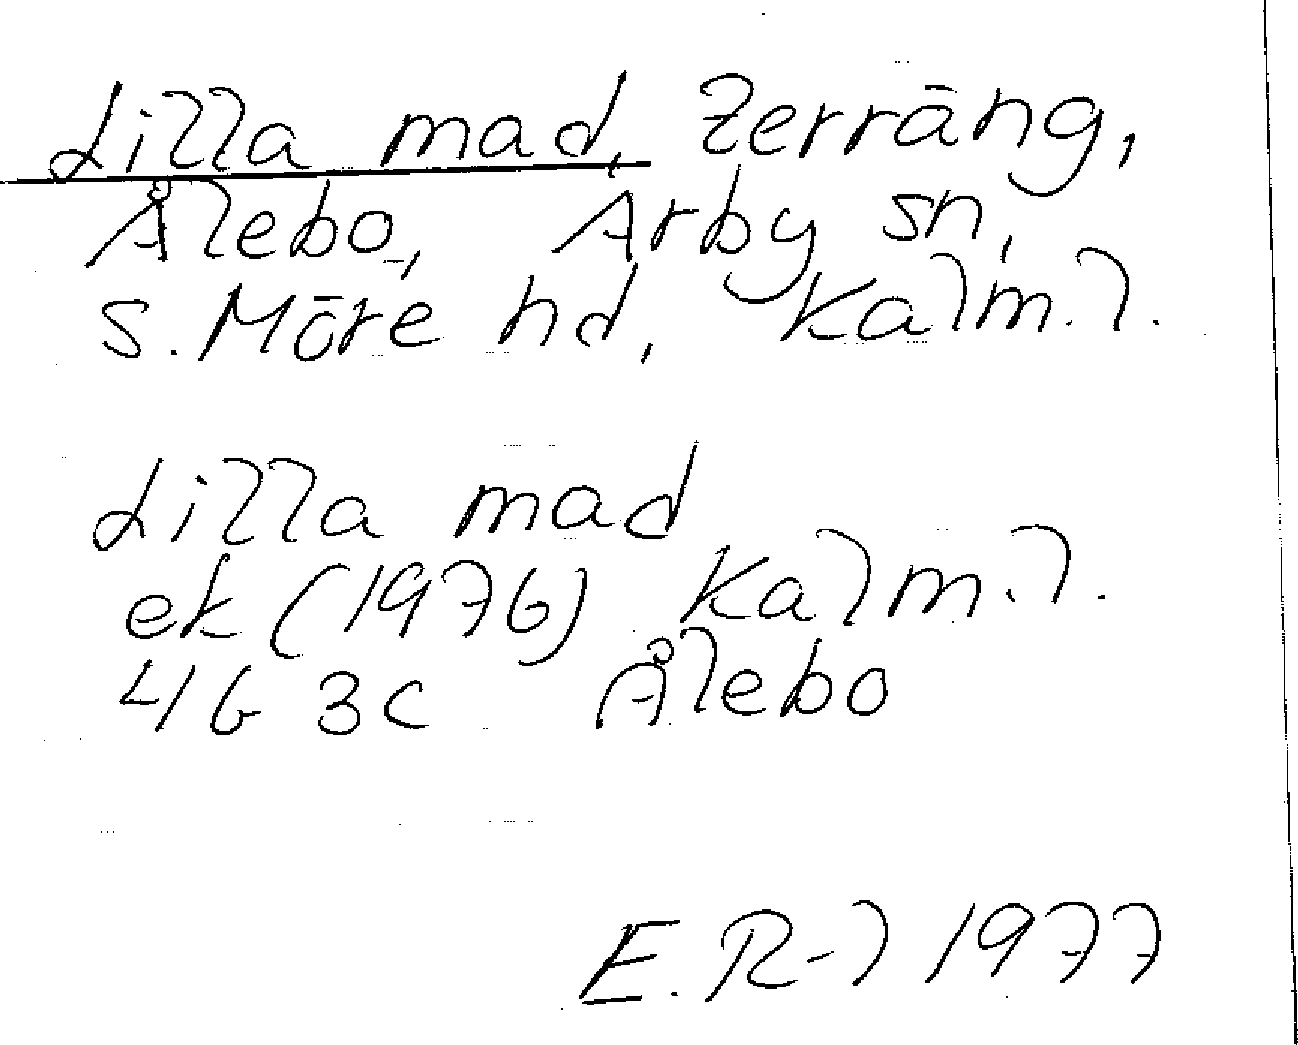 Lilla mad, terräng,
Ålebo, Arby sn,
S. Möre hd, Kalm. l.
Lilla mad
ek (1976) Kalm. l.
4G 3c Ålebo
E. R-l 1977